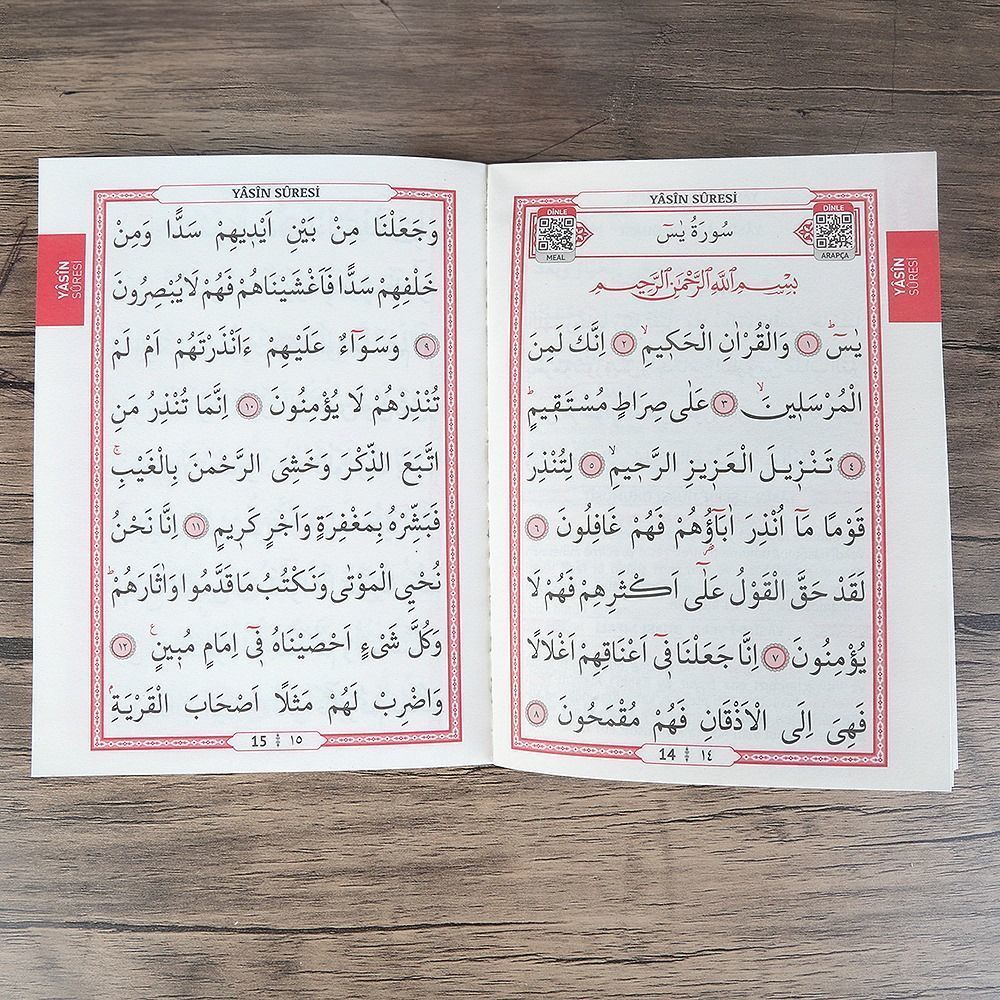 YÂSÎN SÛRESİ
DİNLE
MEAL
سُورَةُ يٰسٓ
DİNLE
ARAPÇA
YÂSÎN
SÛRESİ
بِسْمِ اللّٰهِ الرَّحْمٰنِ الرَّحِيمِ
يٰسٓ ۚ ﴿١﴾ وَالْقُرْاٰنِ الْحَك۪يمِۙ ﴿٢﴾ اِنَّكَ لَمِنَ
الْمُرْسَل۪ينَۙ ﴿٣﴾ عَلٰى صِرَاطٍ مُسْتَق۪يمٍۜ
﴿٤﴾ تَنْز۪يلَ الْعَز۪يزِ الرَّح۪يمِۙ ﴿٥﴾ لِتُنْذِرَ
قَوْمًا مَٓا اُنْذِرَ اٰبَٓاؤُ۬هُمْ فَهُمْ غَافِلُونَ ﴿٦﴾
لَقَدْ حَقَّ الْقَوْلُ عَلٰٓى اَكْثَرِهِمْ فَهُمْ لَا
يُؤْمِنُونَ ﴿٧﴾ اِنَّا جَعَلْنَا ف۪ٓي اَعْنَاقِهِمْ اَغْلَالًا
فَهِيَ اِلَى الْاَذْقَانِ فَهُمْ مُقْمَحُونَ ﴿٨﴾
14 ١٤
YÂSÎN SÛRESİ
YÂSÎN
SÛRESİ
وَجَعَلْنَا مِنْ بَيْنِ اَيْد۪يهِمْ سَدًّا وَمِنْ
خَلْفِهِمْ سَدًّا فَاَغْشَيْنَاهُمْ فَهُمْ لَا يُبْصِرُونَ
﴿٩﴾ وَسَوَٓاءٌ عَلَيْهِمْ ءَاَنْذَرْتَهُمْ اَمْ لَمْ
تُنْذِرْهُمْ لَا يُؤْمِنُونَ ﴿١٠﴾ اِنَّمَا تُنْذِرُ مَنِ
اتَّبَعَ الذِّكْرَ وَخَشِيَ الرَّحْمٰنَ بِالْغَيْبِۚ
فَبَشِّرْهُ بِمَغْفِرَةٍ وَاَجْرٍ كَر۪يمٍ ﴿١١﴾ اِنَّا نَحْنُ
نُحْيِ الْمَوْتٰى وَنَكْتُبُ مَا قَدَّمُوا وَاٰثَارَهُمْۜ
وَكُلَّ شَيْءٍ اَحْصَيْنَاهُ ف۪ٓي اِمَامٍ مُب۪ينٍ۟ ﴿١٢﴾
وَاضْرِبْ لَهُمْ مَثَلًا اَصْحَابَ الْقَرْيَةِۢ
15 ١٥